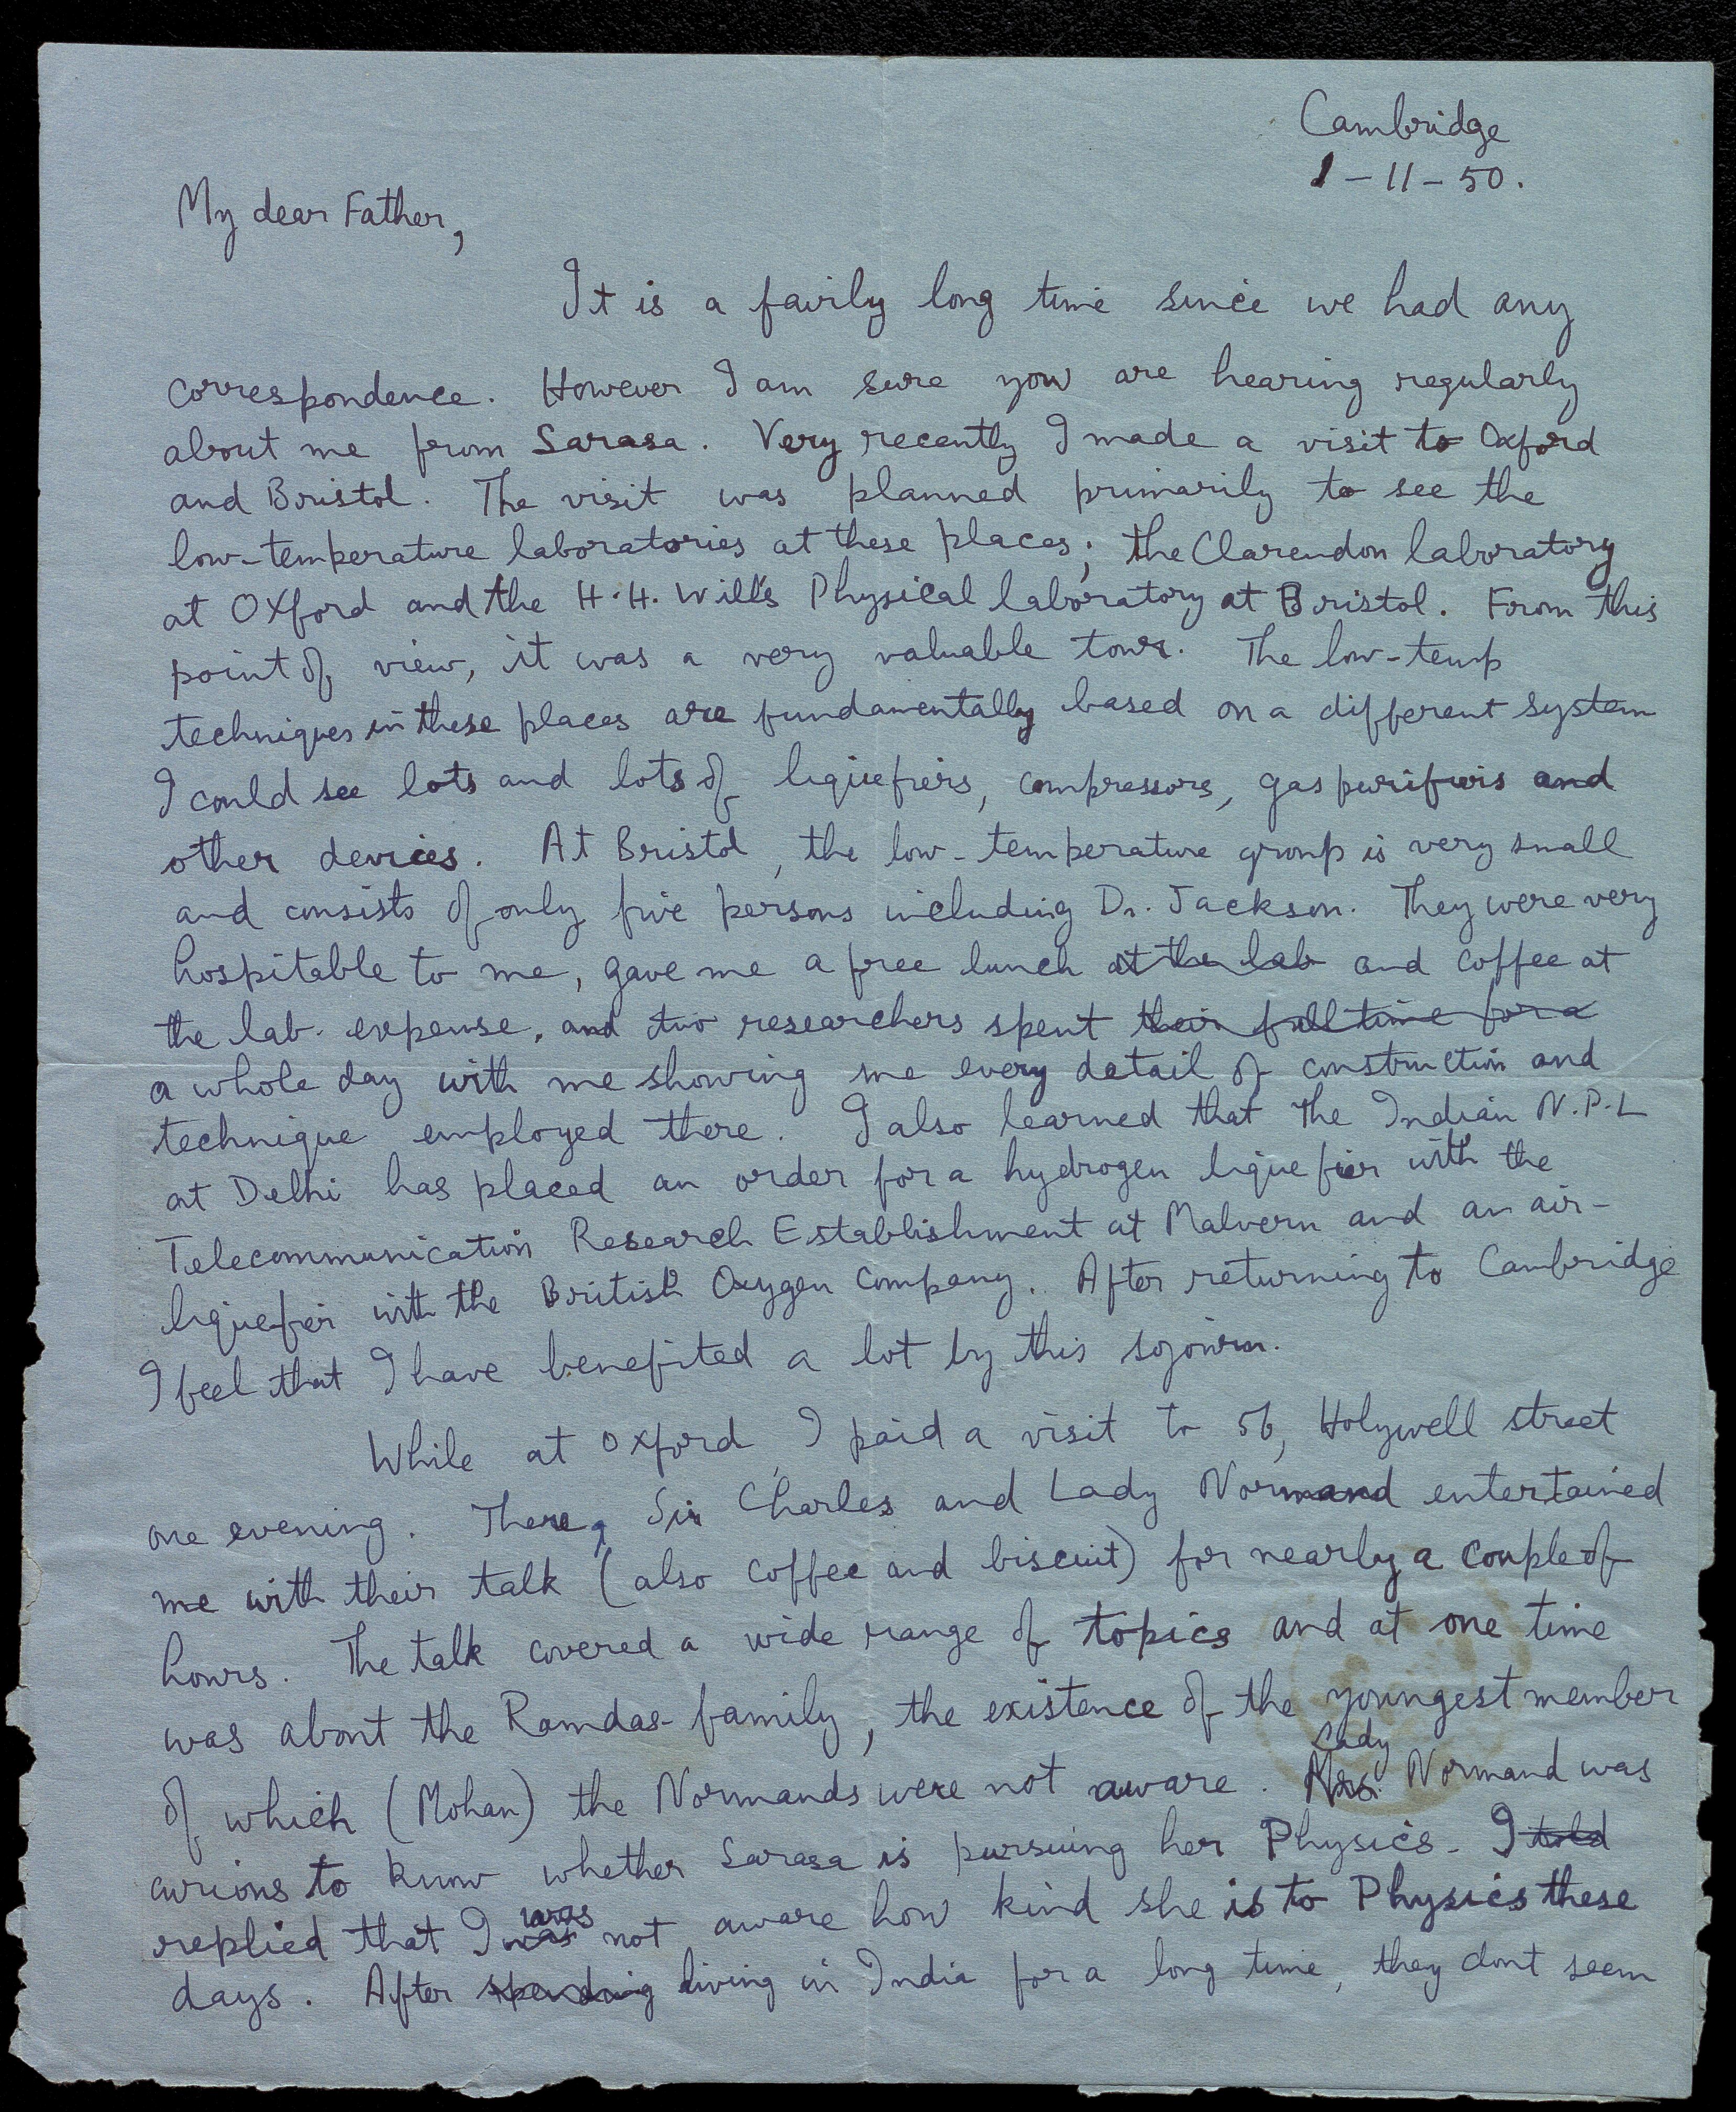 Cambridge
1-11-50.
My dear Father,
It is a fairly long time since we had any
correspondence. However I am sure you are hearing regularly
about me from Sarasa. Very recently I made a visit to Oxford
and Bristol. The visit was planned primarily to see the
low-temperature laboratories at these places; the Clarendon laboratory
at Oxford and the H.H. Wills Physical laboratory at Bristol. From this
point of view, it was a very valuable tour. The low-temp
techniques in these places are fundamentally based on a different system
I could see lots and lots of liquefiers, compressors, gas purifiers and
other devices. At Bristol, the low-temperature group is very small
and consists of only five persons including Dr. Jackson. They were very
hospitable to me, gave me a free lunch at the lab and coffee at
the lab. expense, and two researchers spent their full time for a
a whole day with me showing me every detail of construction and
technique employed there. I also learned that the Indian N.P.L
at Delhi has placed an order for a hydrogen liquefier with the
Telecommunication Research Establishment at Malvern and an air-
liquefier with the British Oxygen Company. After returning to Cambridge
I feel that I have benefited a lot by this sojourn.
While at Oxford, I paid a visit to 56, Holywell street
one evening. There, Sir Charles and Lady Normand entertained
me with their talk (also coffee and biscuit) for nearly a couple of
hours. The talk covered a wide range of topics and at one time
was about the Ramdas-family, the existence of the youngest member
Lady
of which (Mohan) the Normands were not aware. Mrs. Normand was
curious to know whether Sarasa is pursuing her Physics. I told
was
replied that I was not aware how kind she is to Physics these
days. After spending living in India for a long time, they dont seem